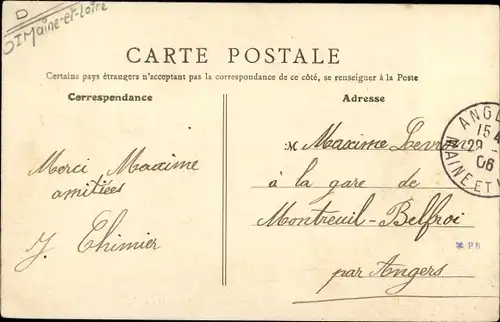 D
Maine-et-Loire
CARTE POSTALE
Certains pays étrangers n'acceptant pas la correspondance de ce côté, se renseigner à la Poste
Correspondance
Adresse
Merci Maxime
amitiées
J. Thimier
M Maxime
à la gare de
Montreuil-Belfroi
par Angers
ANGE
15
29
06
MAINE ET
P B